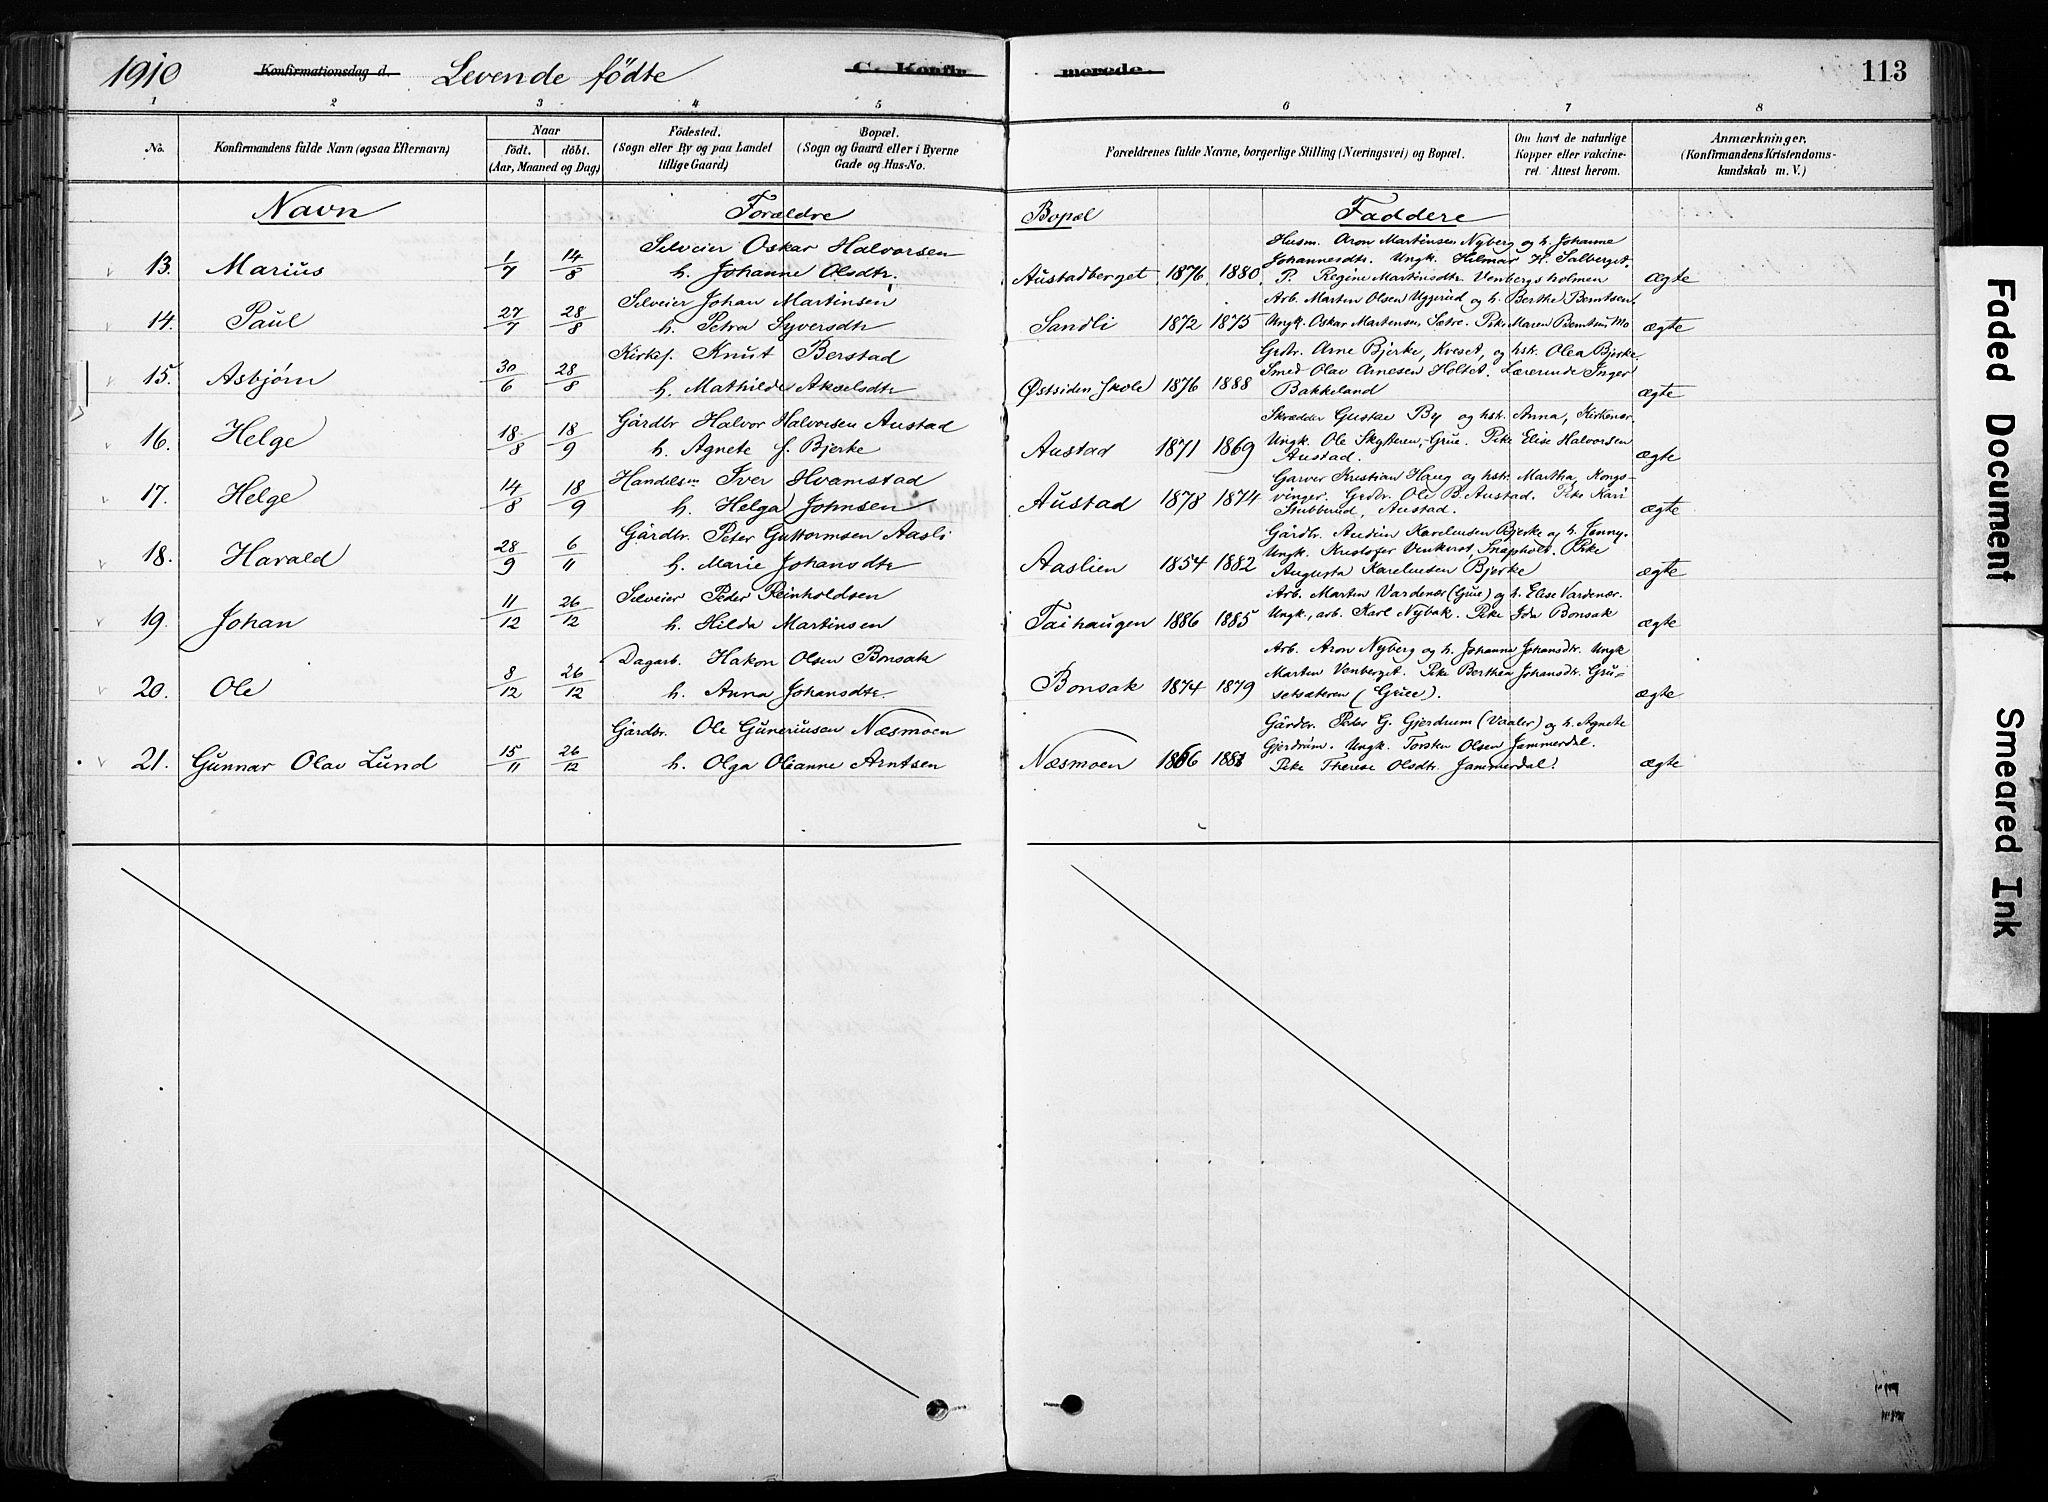 1910 Konfirmationsdag d. Levende födte C. Konfirmerede. 113
1 2 3 4 5 6 7 8
No. Konfirmandens fulde Navn (ogsaa Efternavn)
Naar
födt. döbt.
(Aar, Maaned og Dag)
Födested.
(Sogn eller By og paa Landet
tillige Gaard)
Bopæl.
(Sogn og Gaard eller i Byerne
Gade og Hus-No.
Forældrenes fulde Navne, borgerlige Stilling (Næringsvei) og Bopæl.
Om havt de naturlige
Kopper eller vakcine-
ret. Attest herom.
Anmærkninger.
(Konfirmandens Kristendoms-
kundskab m. V.)
Navn Forældre Bopæl Faddere
13. Marius 1/7 14/8
Selveier Oskar Halvorsen
h. Johanne Olsdtr.
Austadberget 1876 1880
Husm. Aron Martinsen Nyberg og h. Johanne
Johannesdtr. Ungk. Hilmar H. Salberget.
P. Regine Martinsdtr. Venbergsholmen
ægte
14. Paul 27/7 28/8
Selveier Johan Martinsen
h. Petra Syversdtr
Sandli 1872 1875
Arb. Marten Olsen Uggerud og h. Berthe Berntsen.
Ungk. Oskar Martensen Sætre. Pike Maren Berntsen Mo
ægte
15. Asbjørn 30/6 28/8
Kirkes. Knut Berstad
h. Mathilde Akselsdtr
Østsiden Skole 1876 1888
Grdbr. Arne Bjerke, Kveset, og hstr. Olea Bjerke.
Smed Olav Arnesen Holtet. Lærerinde Inger
Bakkeland
ægte
16. Helge 18/8 18/9
Gårdbr Halvor Halvorsen Austad
h. Agnete f. Bjerke
Austad 1871 1869
Skrædder Gustav By og hstr. Anna, Kirkenær.
Ungk. Ole Skytteren, Grue. Pike Elise Halvorsen
Austad.
ægte
17. Helge 14/8 18/9
Handelsm Iver Hvamstad
h. Helga Johnsen
Austad 1878 1874
Garver Kristian Haug og hstr. Martha, Kongs-
vinger. Grdbr. Ole B. Austad. Pike Kari
Stubberud, Austad.
ægte
18. Harald 28/9 6/11
Gårdbr. Peter Guttormsen Aasli
h. Marie Johansdtr
Aaslien 1854 1882
Gårdbr. Audun Karelusen Bjerke og h. Jenny.
Ungk. Kristofer Venkerst, Snapholt. Pike
Augusta Karelusen Bjerke
ægte
19. Johan 11/12 26/12
Selveier Peder Reinholdsen
h. Hilda Martinsen
Taihaugen 1886 1885
Arb. Martin Vardenær (Grue) og h. Elise Vardenær.
Ungk., arb. Karl Nybak. Pike Ida Bonsak
ægte
20. Ole 8/12 26/12
Dagarb. Hakon Olsen Bonsak
h. Anna Johansdtr.
Bonsak 1874 1879
Arb. Aron Nyberg og h. Johanna Johansdtr. Ungk
Marten Venberget. Pike Berthea Johansdtr. Gru-
setsæteren (Grue).
ægte
21. Gunnar Olav Lund 15/11 26/12
Gårdbr. Ole Guneriusen Næsmoen
h. Olga Olianne Arntsen
Næsmoen 1866
Gårdbr. Peder G. Gjerdrum (Vaaler) og h. Agnete
Gjerdrum. Ungk. Torsten Olsen Jammerdal.
Pike Therese Olsdtr. Jammerdal.
ægte
Faded Document
Smeared Ink